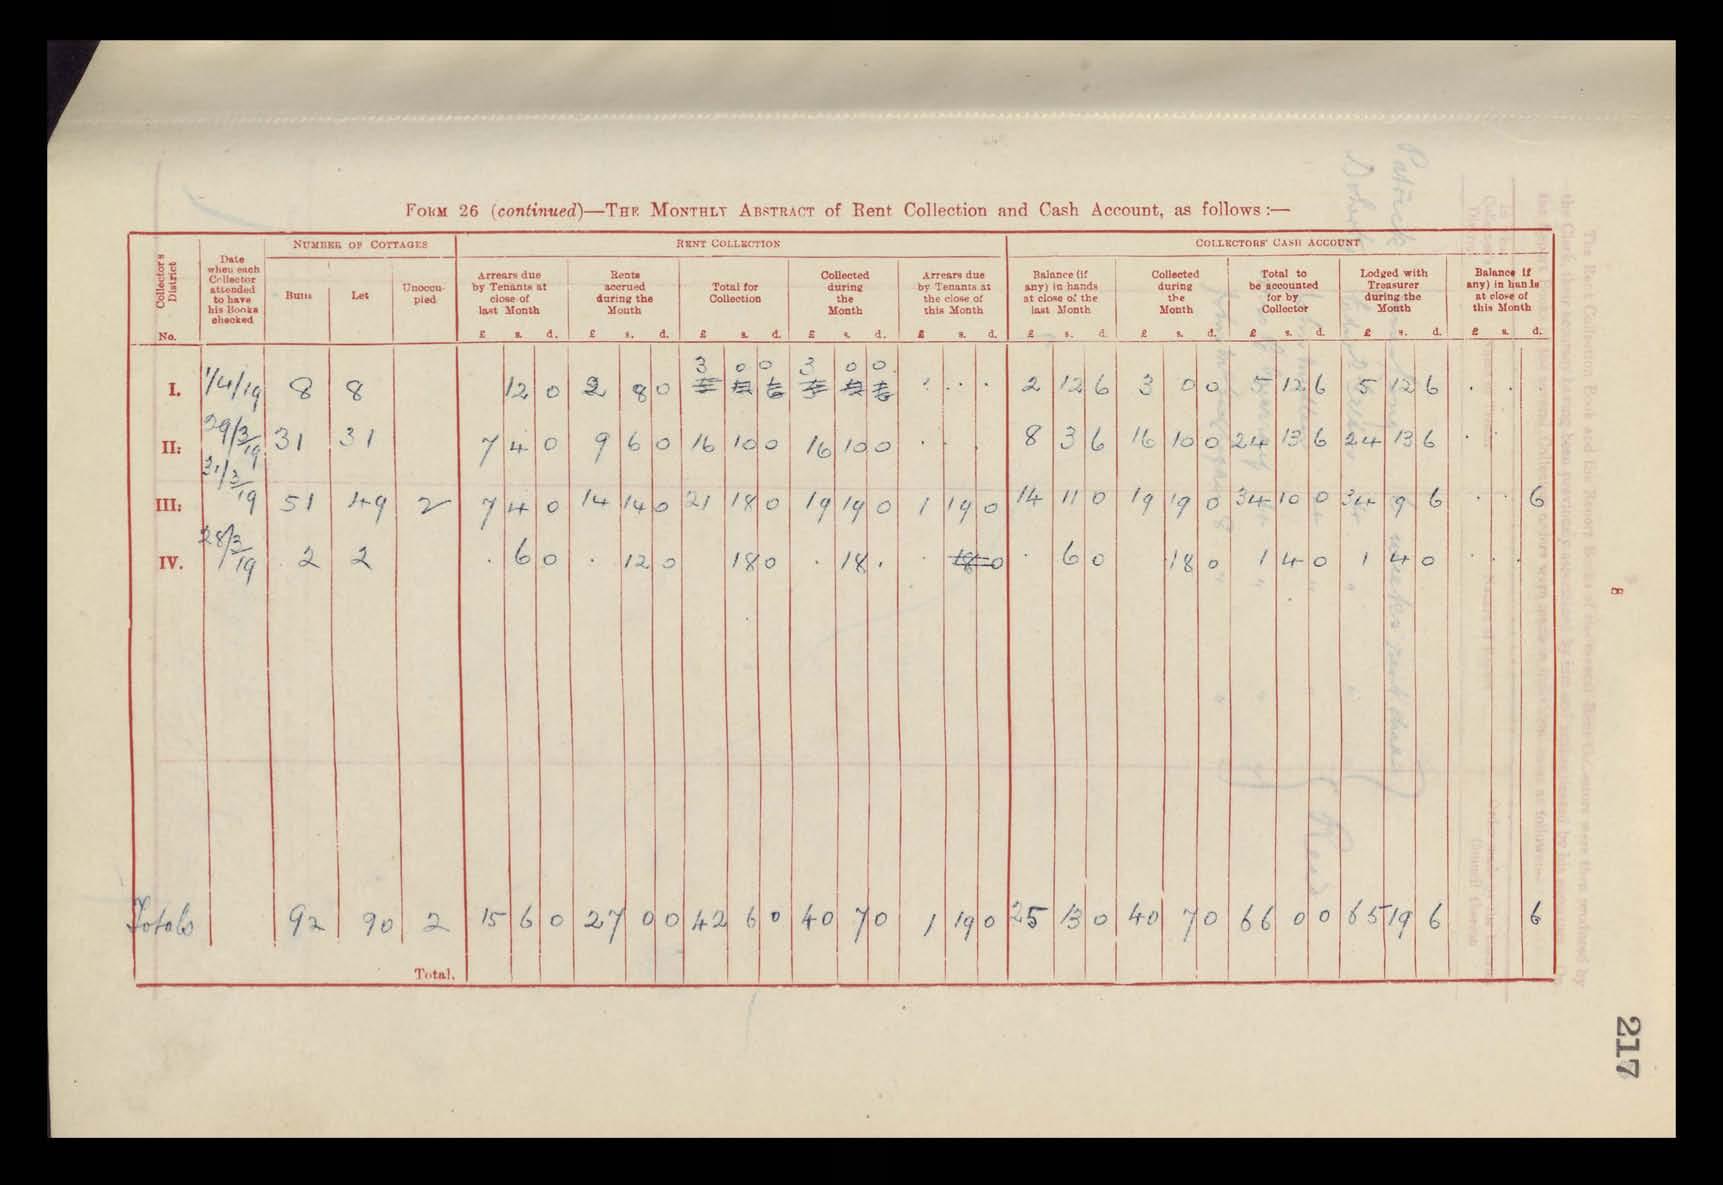 FORM 26 (continued)—THE MONTHLY ABSTRACT of Rent Collection and Cash Account, as follows:—
Collector's District No.
Date when each Collector attended to have his Books checked
NUMBER OF COTTAGES
Built
Let
Unoccupied
RENT COLLECTION
Arrears due by Tenants at close of last Month
Rents accrued during the Month
Total for Collection
Collected during the Month
Arrears due by Tenants at the close of this Month
COLLECTORS' CASH ACCOUNT
Balance (if any) in hands at close of the last Month
Collected during the Month
Total to be accounted for by Collector
Lodged with Treasurer during the Month
Balance if any) in hands at close of this Month
£ s. d. £ s. d. £ s. d. £ s. d. £ s. d. £ s. d. £ s. d. £ s. d. £ s. d. £ s. d.
I. 1/4/19 8 8 12 0 2 8 0 3 0 0 3 0 0 . . . 2 12 6 3 0 0 5 12 6 5 12 6 . . .
II. 29/3/19 31 31 7 4 0 9 6 0 16 10 0 16 10 0 . . . 8 3 6 16 10 0 24 13 6 24 13 6 . .
III. 31/3/19 51 49 2 7 4 0 14 14 0 21 18 0 19 19 0 1 19 0 14 11 0 19 19 0 34 10 0 34 9 6 . . 6
IV. 28/3/19 2 2 . 6 0 . 12 0 18 0 . 18 . . 18 0 . 6 0 18 0 1 4 0 1 4 0 . . .
Totals 92 90 2 15 6 0 27 0 0 42 6 0 40 7 0 1 19 0 25 13 0 40 7 0 66 0 0 65 19 6 6
Total.
8
217